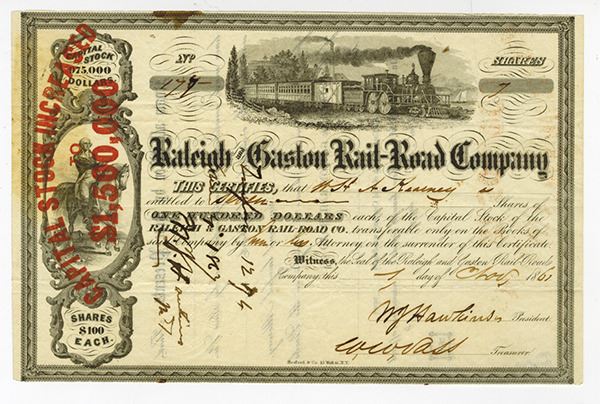 CAPITAL STOCK
975,000
DOLLARS
CAPITAL STOCK INCREASED
TO
$1,500,000
SHARES
$100
EACH.
No
SHARES
7
Raleigh and Gaston Rail-Road Company
THIS CERTIFIES, that W H A Kearney is
entitled to Seven Shares of
ONE HUNDRED DOLLARS each, of the Capital Stock of the
RALEIGH & GASTON RAIL ROAD CO. transferable only on the Books of
said Company by him or his Attorney on the surrender of this Certificate.
Witness, the Seal of the Raleigh and Gaston Rail-Road
Company, this 7 day of Nov 1861
W J Hawkins President
W. W. Vass
Treasurer